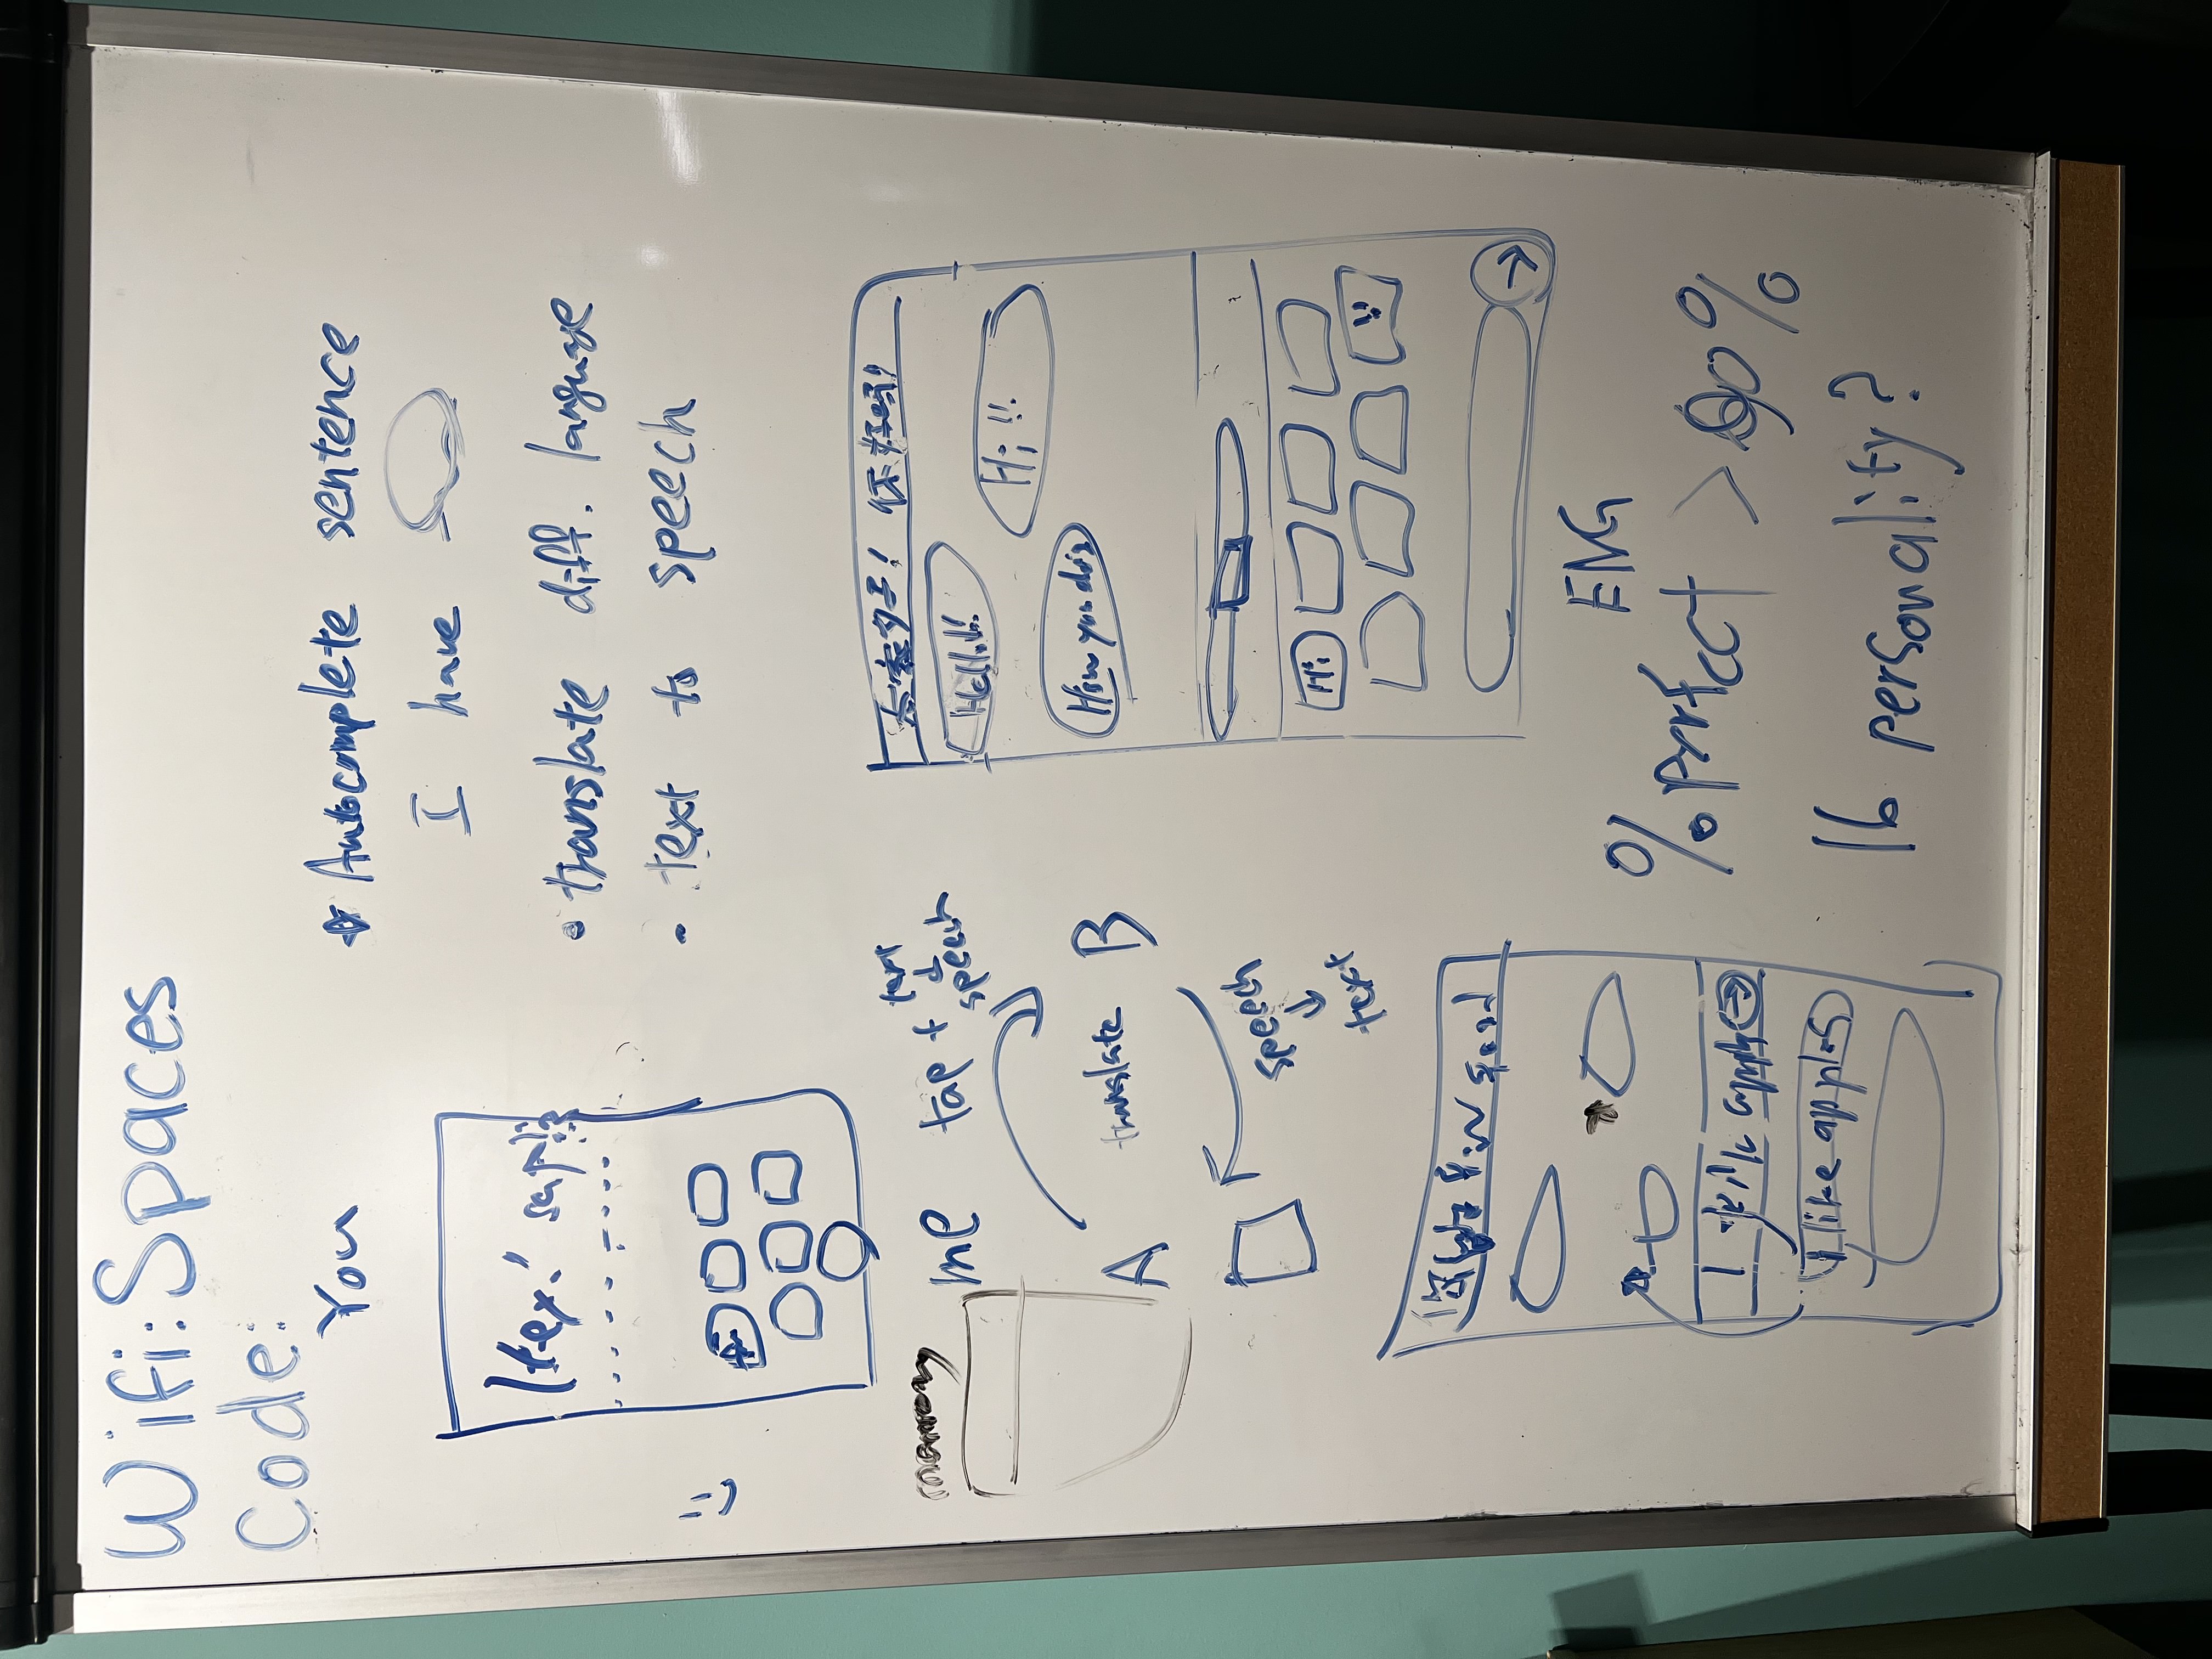 Wifi: Spaces
Code:
You
Autocomplete sentence
I have
• translate diff. language
• text to speech
memory
me
tap + text
↓
speech
A
translate
B
speech
↓
text
大家好! 你好吗!
Hello!!
Hi !!
How you doin
Hi
!!
→
ENG
I like apples
% perfect > 90%
16 personality?